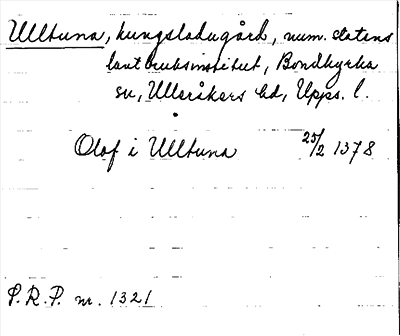 Ulltuna, kungsladugård, num. statens
lantbruksinstitut, Bondkyrka
sn, Ulleråkers hd, Upps. l.
Olof i Ulltuna 25/2 1378
S.R.P. nr. 1321